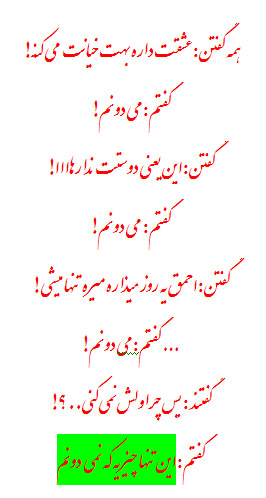 همه گفتن: عشقت داره بهت خیانت می کنه!
گفتم: می دونم!
گفتن: این یعنی دوستت نداره هاااا!
گفتم: می دونم!
گفتن: احمق یه روز میذاره میره تنها میشی!
گفتم: می دونم!...
گفتند: پس چرا ولش نمی کنی..؟!
گفتم: این تنها چیزیه که نمی دونم